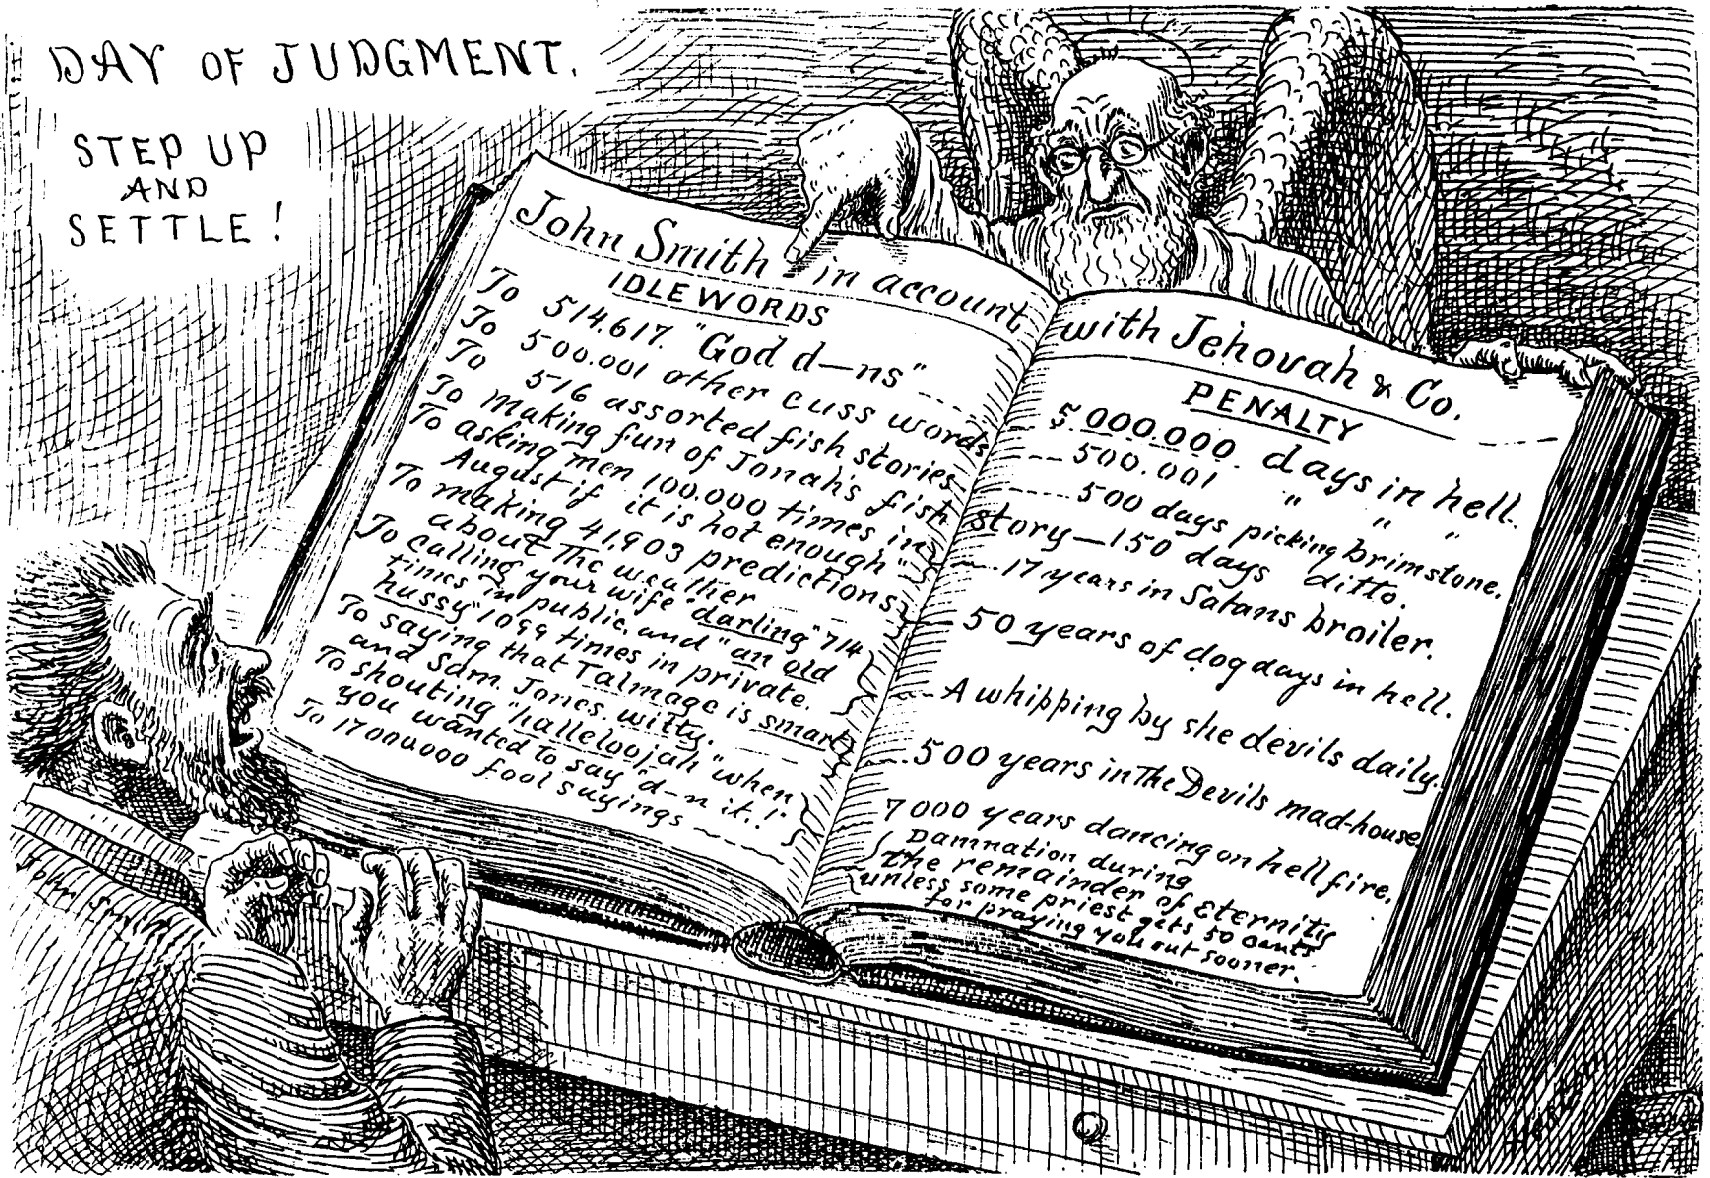 DAY OF JUDGMENT.
STEP UP
AND
SETTLE!
John Smith - in account
IDLE WORDS
To 514.617. "God d—ns"
To 500.001 other cuss words
To 516 assorted fish stories
To making fun of Jonah's fish
To asking men 100.000 times in
August if it is hot enough"
To making 41,903 predictions
about The weather
To calling your wife "darling" 714
times in public, and "an old
hussy" 1099 times in private.
To saying that Talmage is smart
and Sam. Jones. witty.
To shouting "halleloojah" when
you wanted to say "d—n it.!"
To 17000000 fool sayings
with Jehovah & Co.
PENALTY
5.000.000. days in hell.
500.001 " " "
500 days picking brimstone.
story—150 days ditto.
17 years in Satans broiler.
50 years of dog days in hell.
A whipping by she devils daily.
500 years in The Devils mad-house
7000 years dancing on hell fire.
Damnation during
the remainder of Eternity
unless some priest gets 50 cents
for praying you out sooner.
John Smith